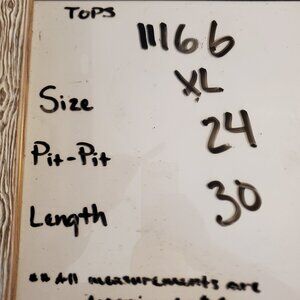 TOPS
11166
Size XL
Pit-Pit 24
Length 30
** All measurements are